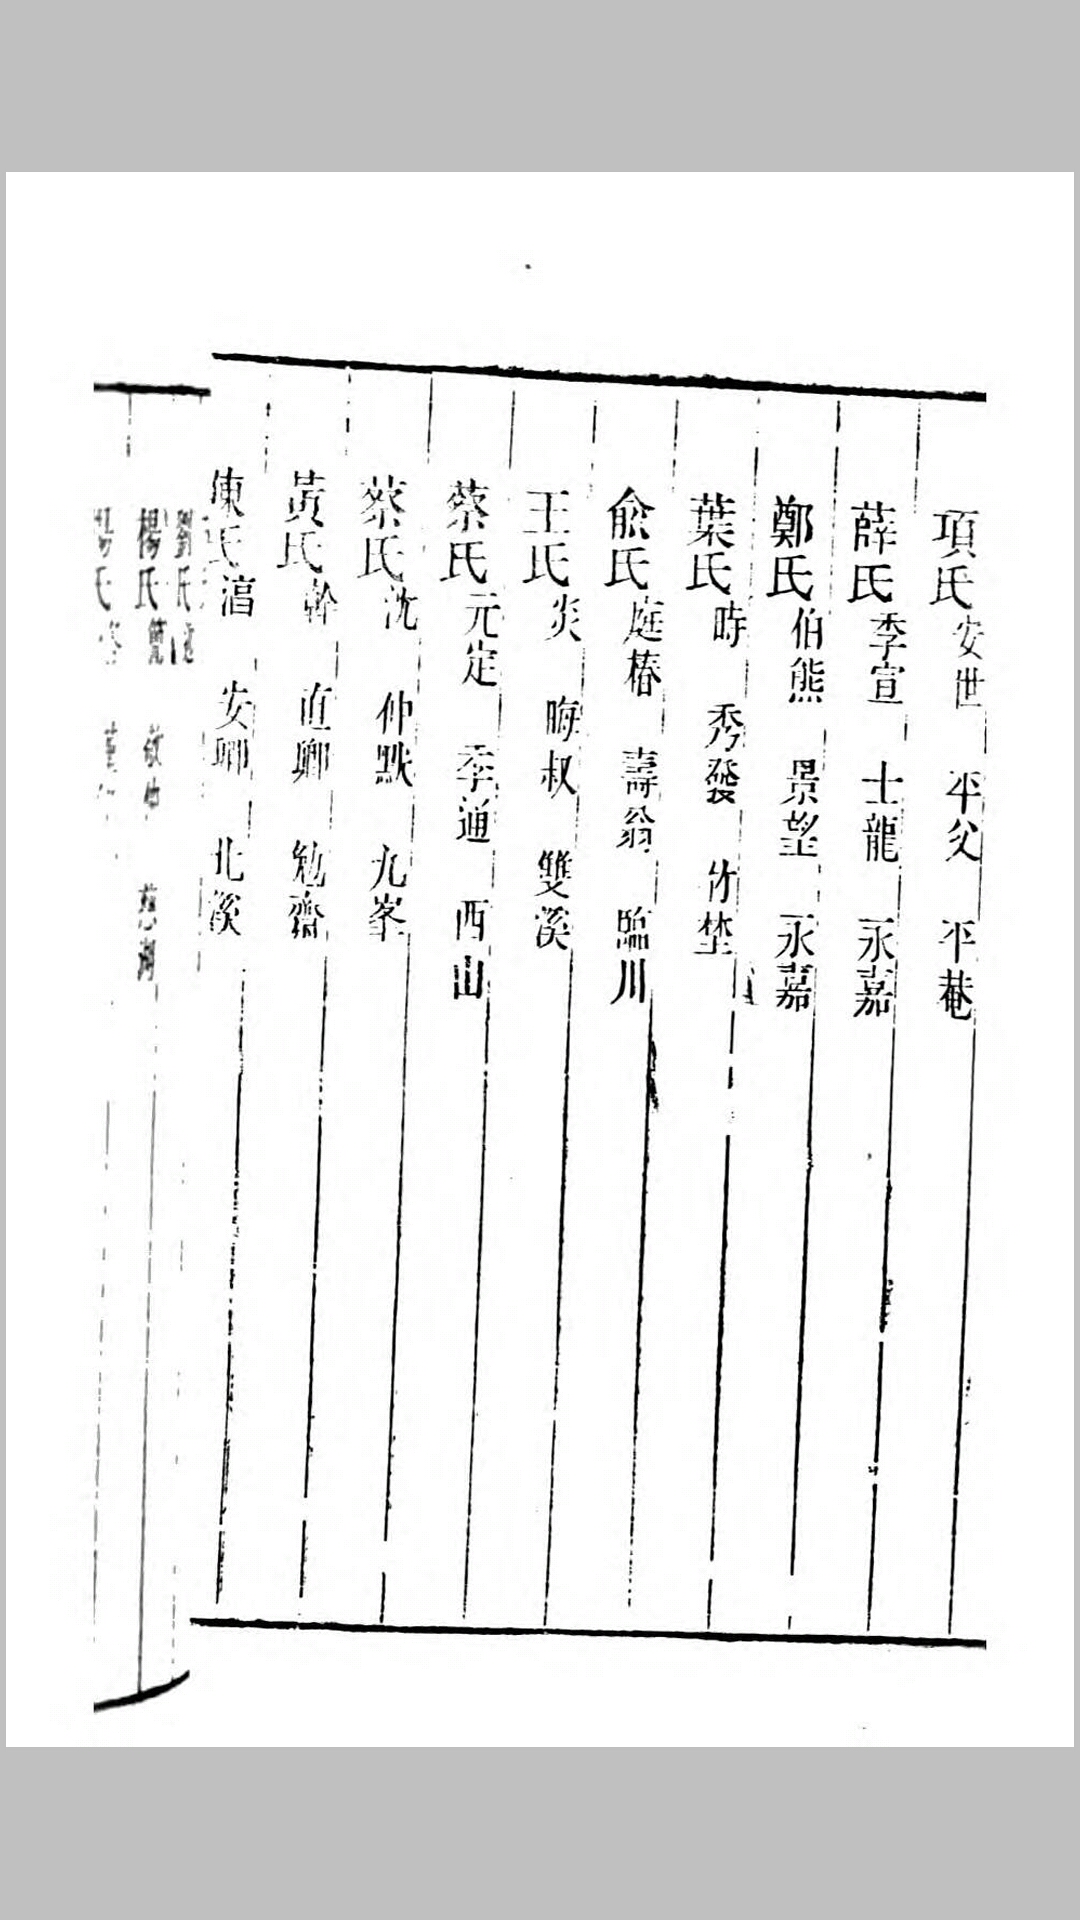 項氏安世 平父 平菴
薛氏季宣 士龍 永嘉
鄭氏伯熊 景望 永嘉
葉氏時 秀發 竹埜
俞氏庭椿 壽翁 臨川
王氏炎 晦叔 雙溪
蔡氏元定 季通 西山
蔡氏沈 仲默 九峯
黃氏幹 直卿 勉齋
陳氏淳 安卿 北溪
劉氏
楊氏簡 敬仲 慈湖
楊氏